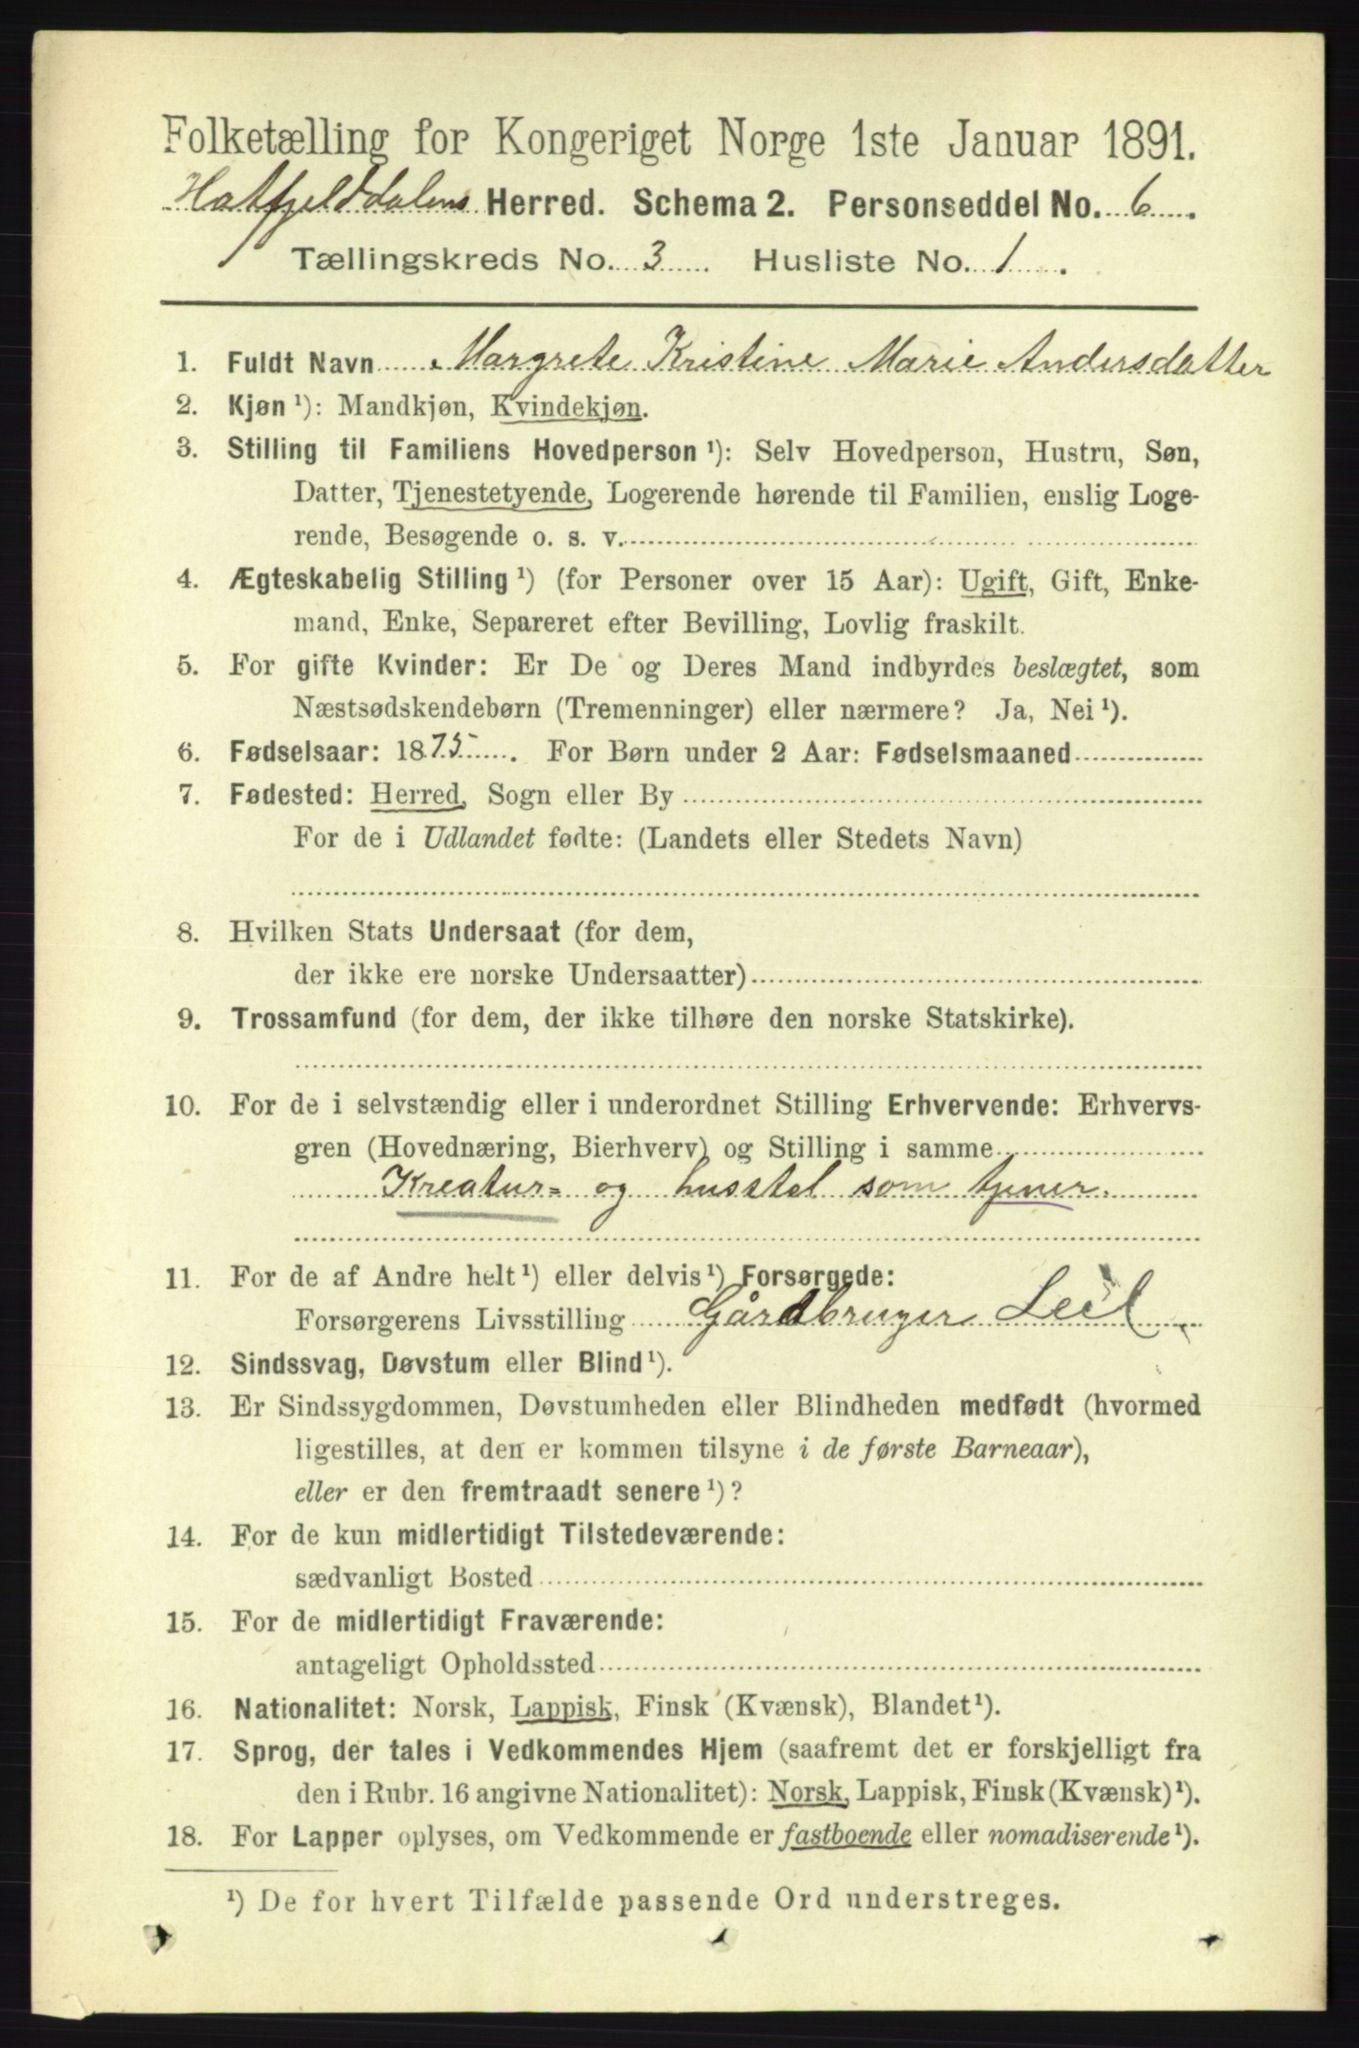 Folketælling for Kongeriget Norge 1ste Januar 1891.
Hatfjelddalens Herred. Schema 2. Personseddel No. 6.
Tællingskreds No. 3 Husliste No. 1.
1. Fuldt Navn Margrete Kristine Marie Andersdatter
2. Kjøn ¹): Mandkjøn, Kvindekjøn.
3. Stilling til Familiens Hovedperson ¹): Selv Hovedperson, Hustru, Søn,
Datter, Tjenestetyende, Logerende hørende til Familien, enslig Loge-
rende, Besøgende o. s. v.
4. Ægteskabelig Stilling ¹) (for Personer over 15 Aar): Ugift, Gift, Enke-
mand, Enke, Separeret efter Bevilling, Lovlig fraskilt.
5. For gifte Kvinder: Er De og Deres Mand indbyrdes beslægtet, som
Næstsødskendebørn (Tremenninger) eller nærmere? Ja, Nei ¹).
6. Fødselsaar: 1875. For Børn under 2 Aar: Fødselsmaaned
7. Fødested: Herred, Sogn eller By
For de i Udlandet fødte: (Landets eller Stedets Navn)
8. Hvilken Stats Undersaat (for dem,
der ikke ere norske Undersaatter)
9. Trossamfund (for dem, der ikke tilhøre den norske Statskirke).
10. For de i selvstændig eller i underordnet Stilling Erhvervende: Erhvervs-
gren (Hovednæring, Bierhverv) og Stilling i samme
Kreatur= og husstel som tjener.
11. For de af Andre helt ¹) eller delvis ¹) Forsørgede:
Forsørgerens Livsstilling Gårdbruger Leil
12. Sindssvag, Døvstum eller Blind ¹).
13. Er Sindssygdommen, Døvstumheden eller Blindheden medfødt (hvormed
ligestilles, at den er kommen tilsyne i de første Barneaar),
eller er den fremtraadt senere ¹)?
14. For de kun midlertidigt Tilstedeværende:
sædvanligt Bosted
15. For de midlertidigt Fraværende:
antageligt Opholdssted
16. Nationalitet: Norsk, Lappisk, Finsk (Kvænsk), Blandet ¹).
17. Sprog, der tales i Vedkommendes Hjem (saafremt det er forskjelligt fra
den i Rubr. 16 angivne Nationalitet): Norsk, Lappisk, Finsk (Kvænsk) ¹).
18. For Lapper oplyses, om Vedkommende er fastboende eller nomadiserende ¹).
¹) De for hvert Tilfælde passende Ord understreges.